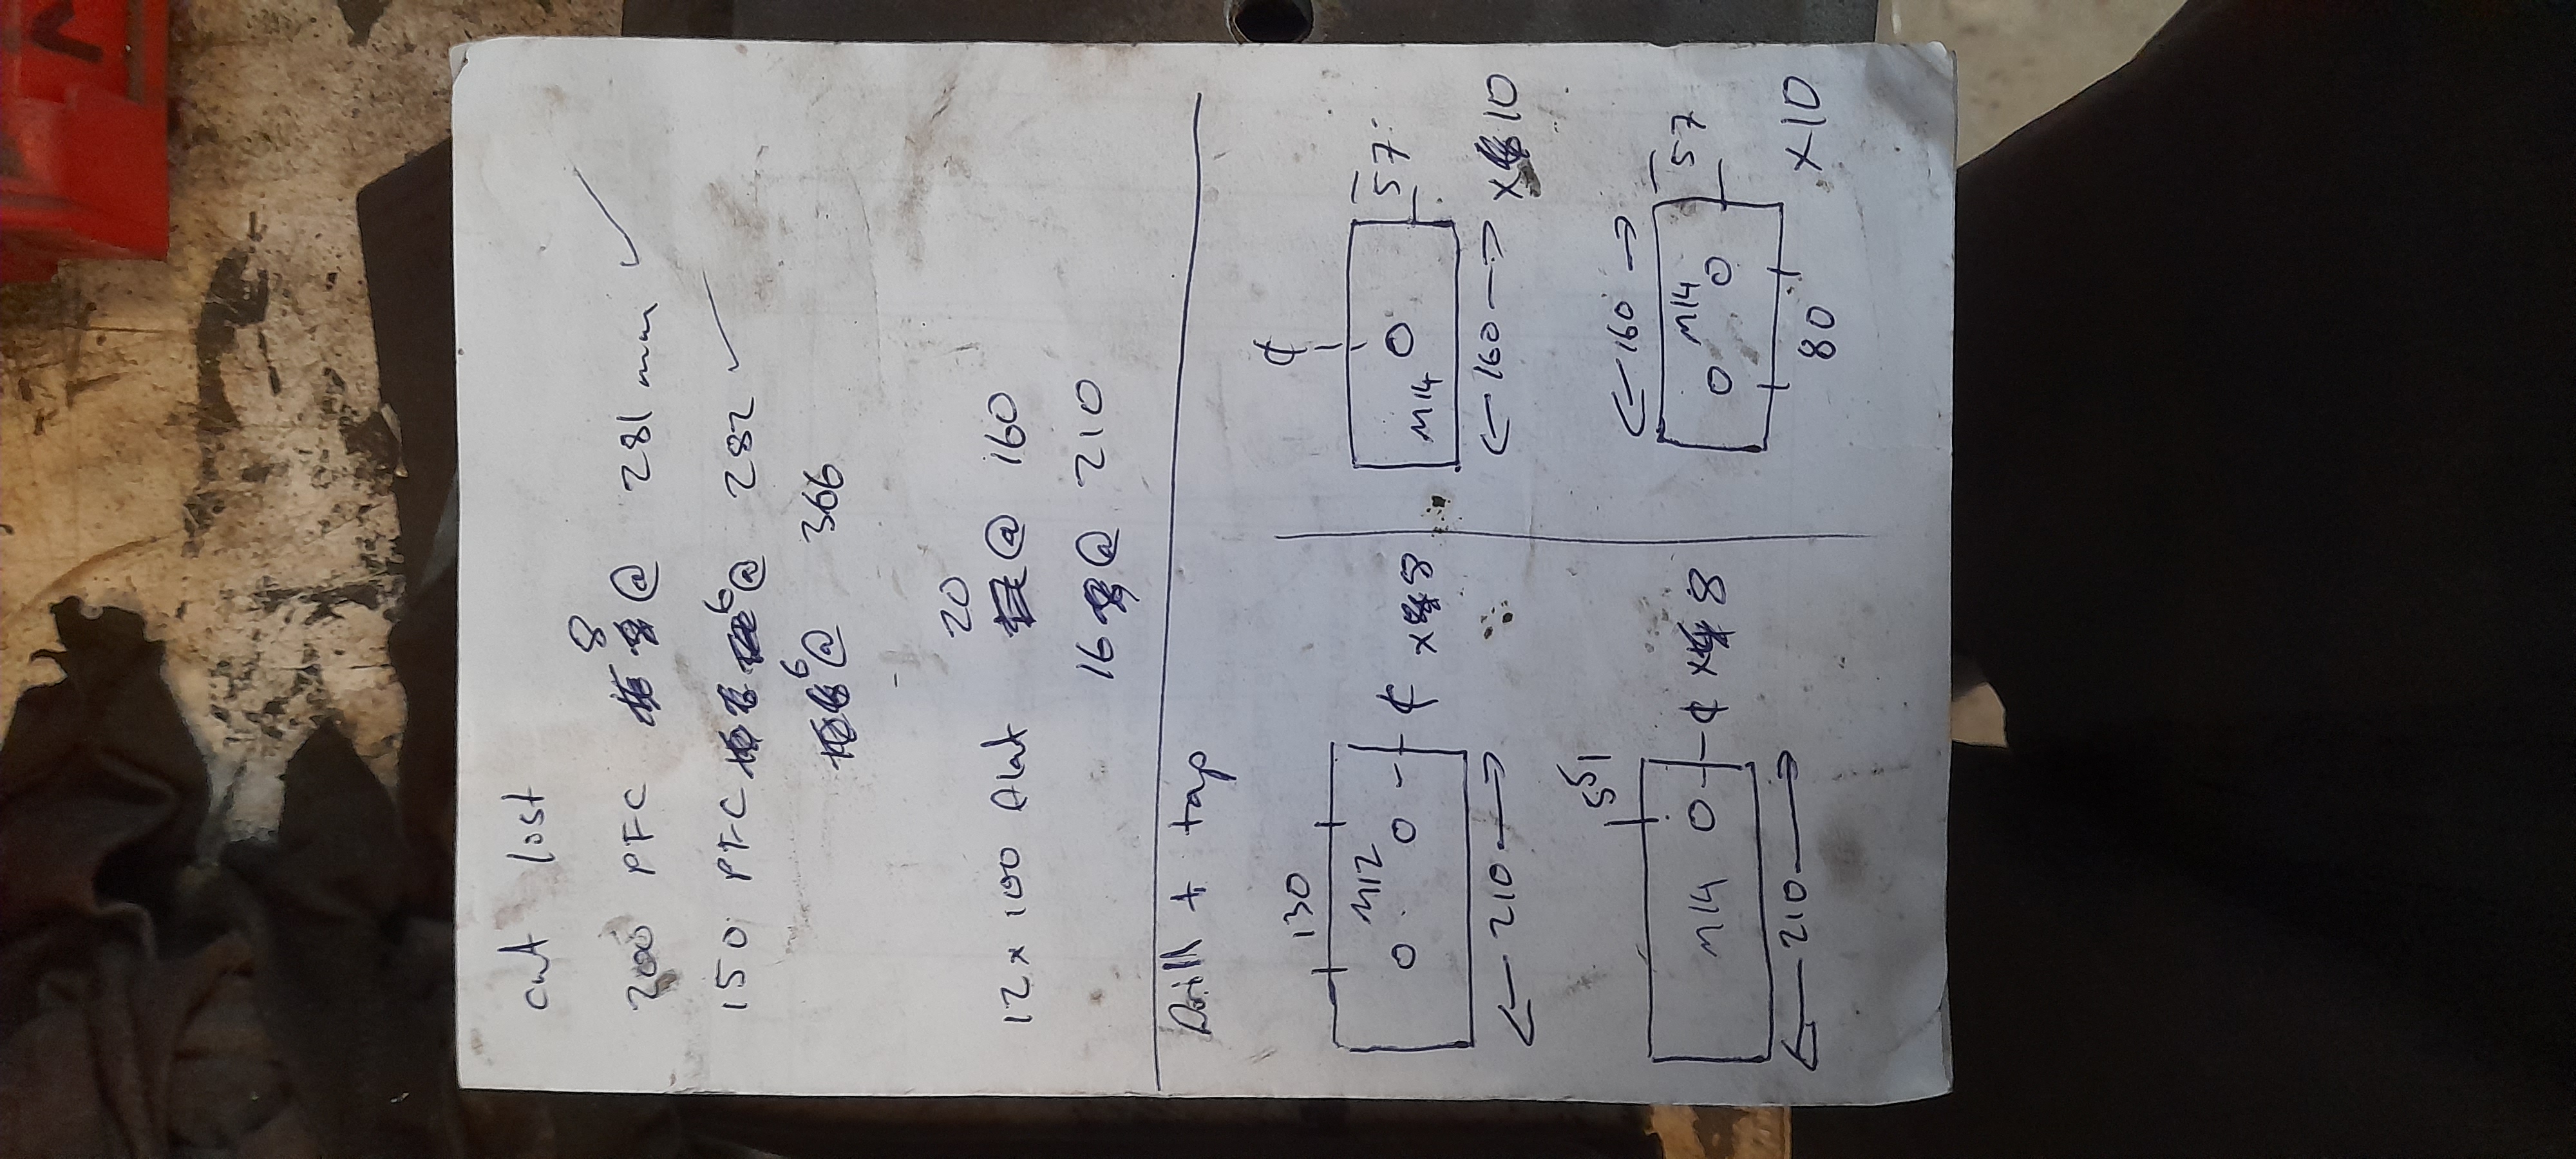 cut lost
8
200 PFC @ 281 mm ✓
150 PFC 6 @ 282 ✓
6 @ 366
20
12 x 100 flat @ 160
16 @ 210
Drill + tap
130
M12
¢ x 8
← 210 →
55
M14 ¢ x 8
← 210 →
¢
57
M14
← 160 →
x 10
← 160 →
M14 57
80 x10